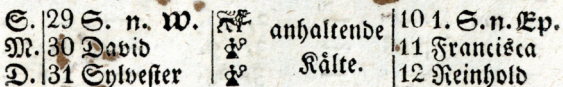 S. 29 S. n. W. anhaltende 10 1. S. n. Ep.
M. 30 David Kälte. 11 Francisca
D. 31 Sylvester 12 Reinhold